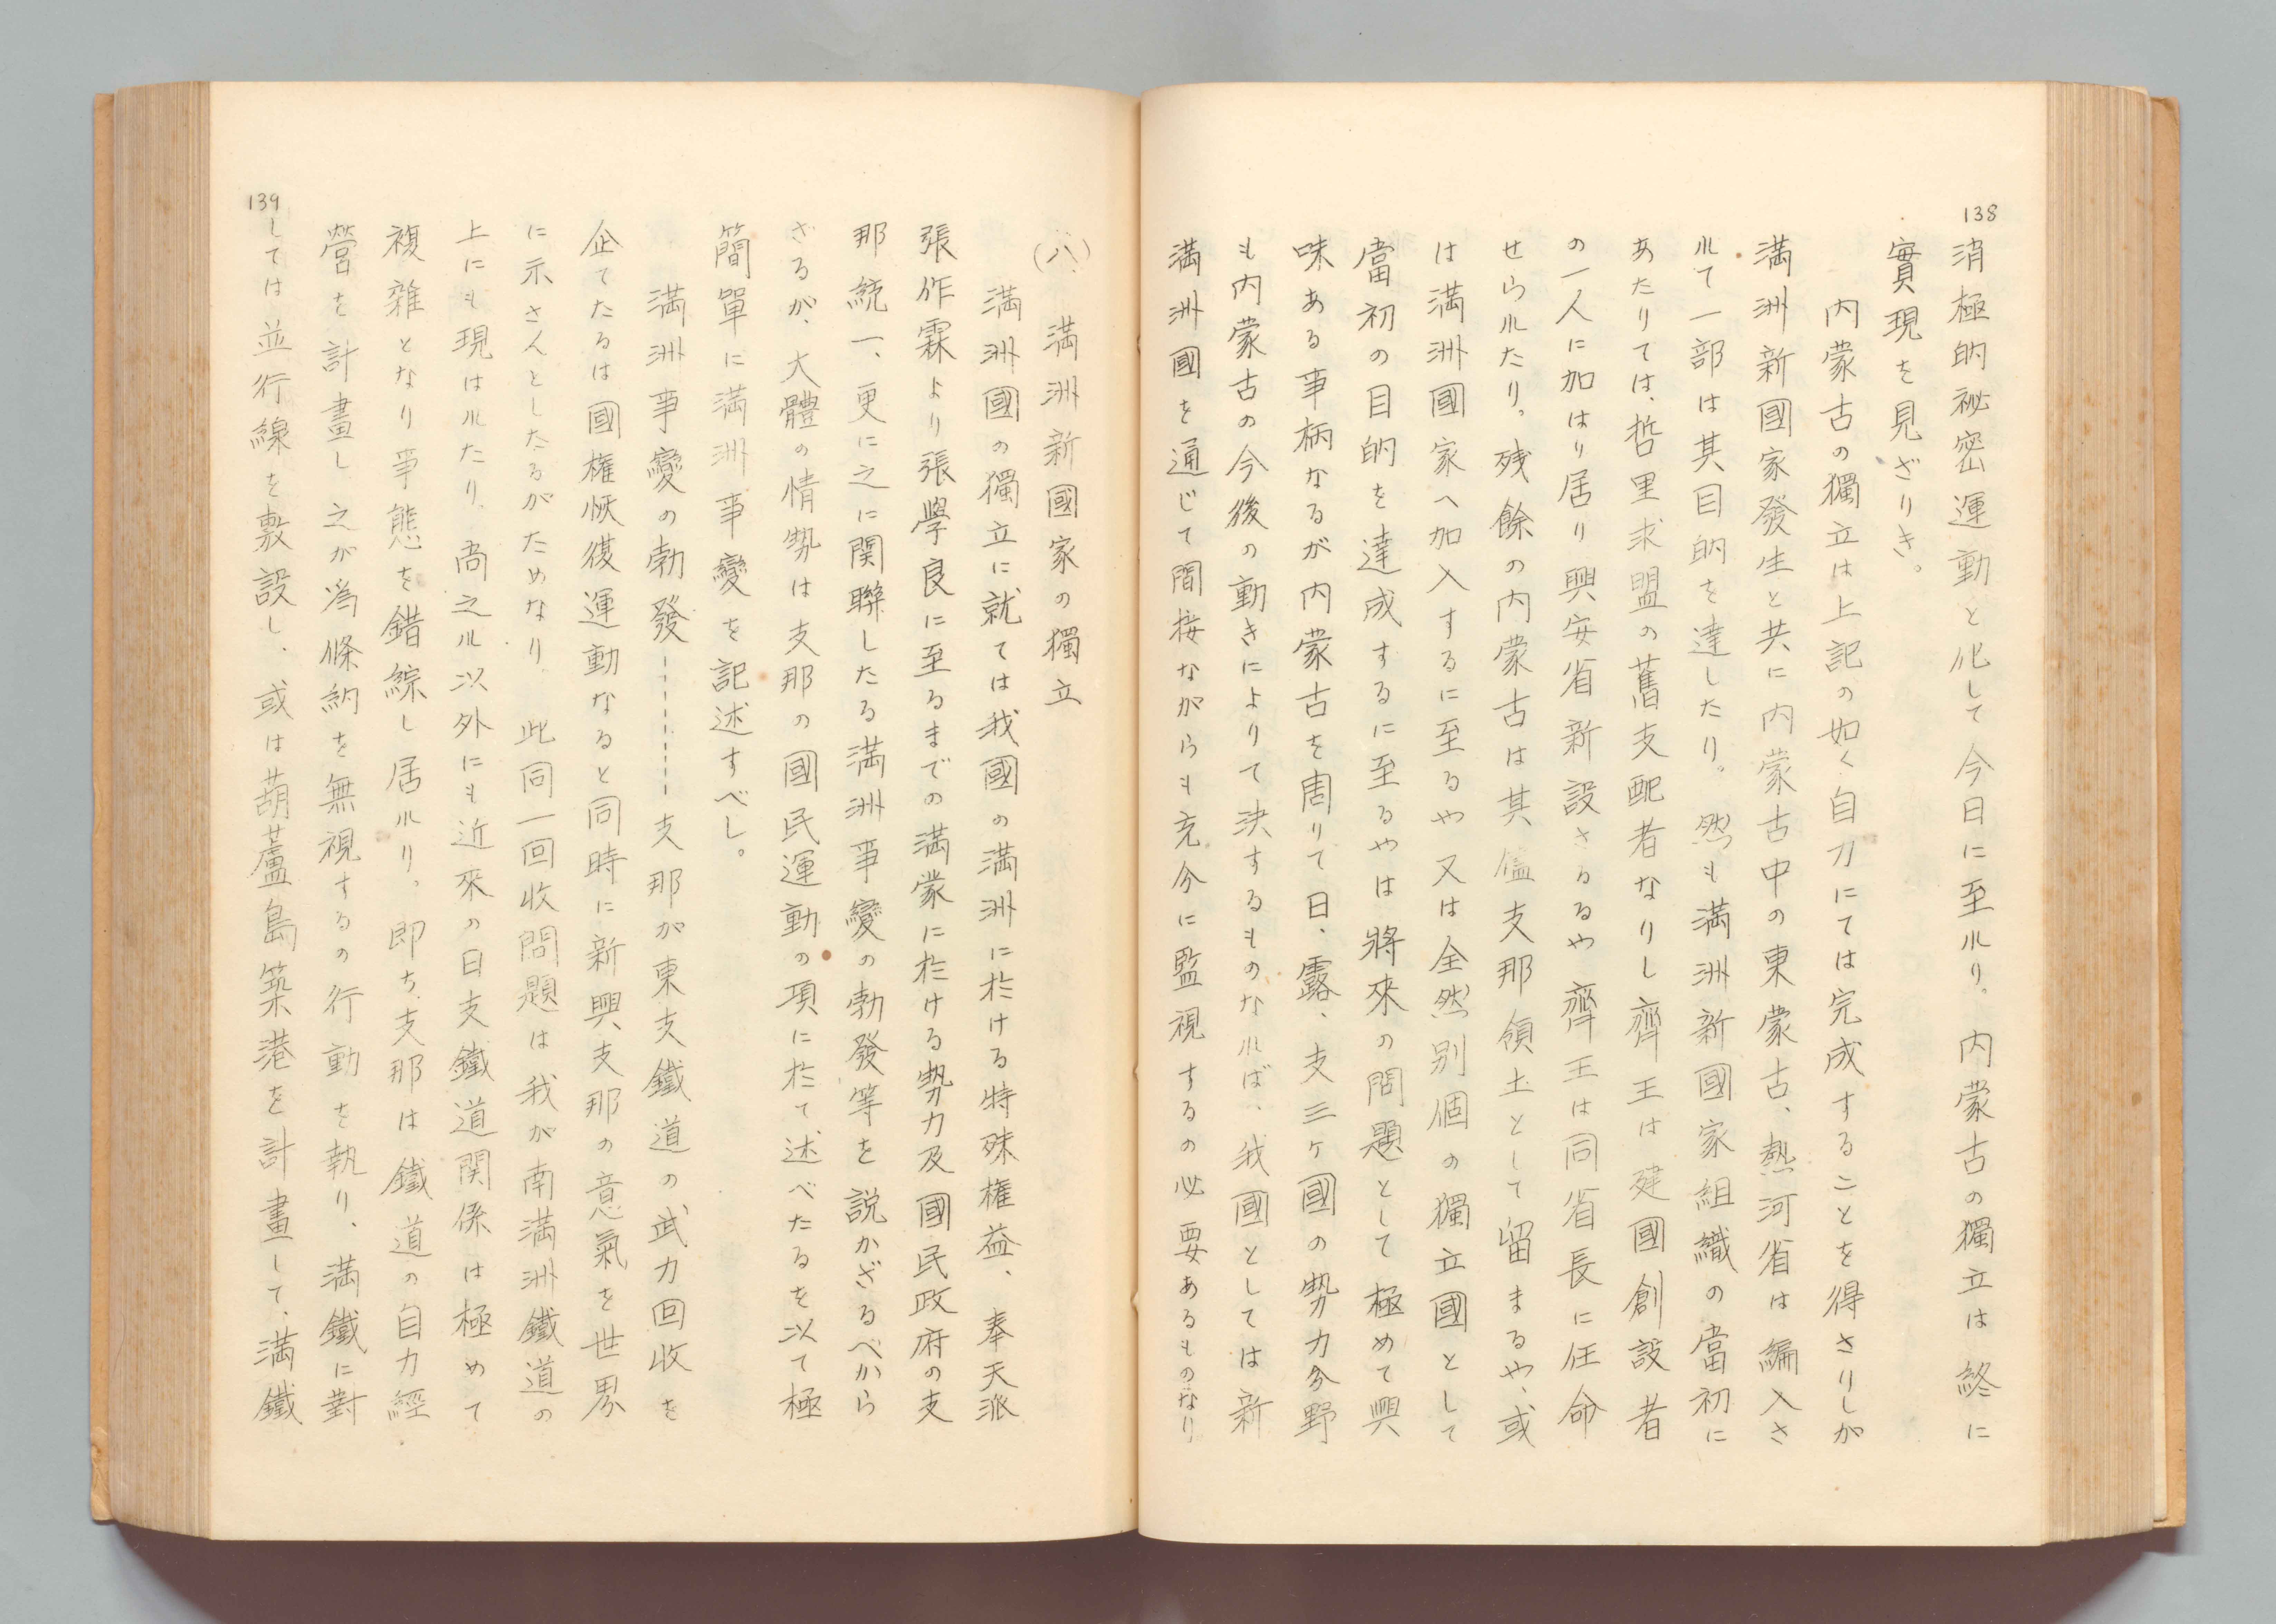 138
消極的祕密運動と化して今日に至ルリ。内蒙古の獨立は終に
實現を見ざりき。
内蒙古の獨立は上記の如く自力にては完成することを得さりしが
満洲新國家發生と共に内蒙古中の東蒙古、熱河省は編入さ
ルて一部は其目的を達したり。然も満洲新國家組織の當初に
あたりては、哲里求盟の舊支配者なりし齊王は建國創設者
の一人に加はり居り興安省新設さるるや齊王は同省長に任命
せらルたり。残餘の内蒙古は其儘支那領土として留まるや、或
は満洲國家へ加入するに至るや又は全然別個の獨立國として
當初の目的を達成するに至るやは將來の問題として極めて興
味ある事柄なるが内蒙古を周りて日、露、支三ヶ國の勢力分野
も内蒙古の今後の動きによりて決するものなルば、我國としては新
満洲國を通じて間接ながらも充分に監視するの必要あるものなり
(八、満洲新國家の獨立
満洲國の獨立に就ては我國の満洲に於ける特殊権益、奉天派
張作霖より張學良に至るまでの満蒙に於ける勢力及國民政府の支
那統一、更に之に関聯したる満洲事變の勃發等を説かざるべから
ざるが、大體の情勢は支那の國民運動の項に於て述べたるを以て極
簡單に満洲事變を記述すべし。
満洲事變の勃發----------支那が東支鐵道の武力回收を
企てたるは國権恢復運動なると同時に新興支那の意氣を世界
に示さんとしたるがためなり。此同一回收問題は我が南満洲鐵道の
上にも現はルたり、尚之ル以外にも近來の日支鐵道関係は極めて
複雜となり事態を錯綜し居ルリ。即ち支那は鐵道の自力經
營を計畫し之が爲條約を無視するの行動を執り、満鐵に對
139
しては並行線を敷設し、或は葫蘆島築港を計畫して、満鐵